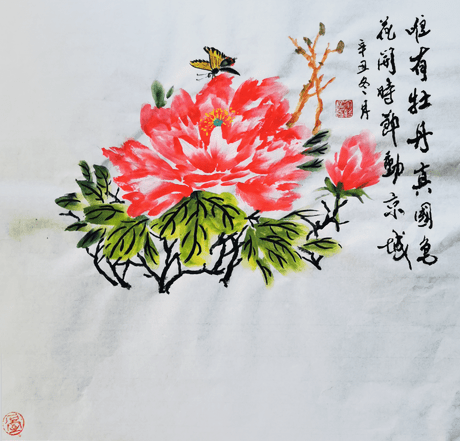 唯有牡丹真國色
花開時節動京城
辛丑冬月